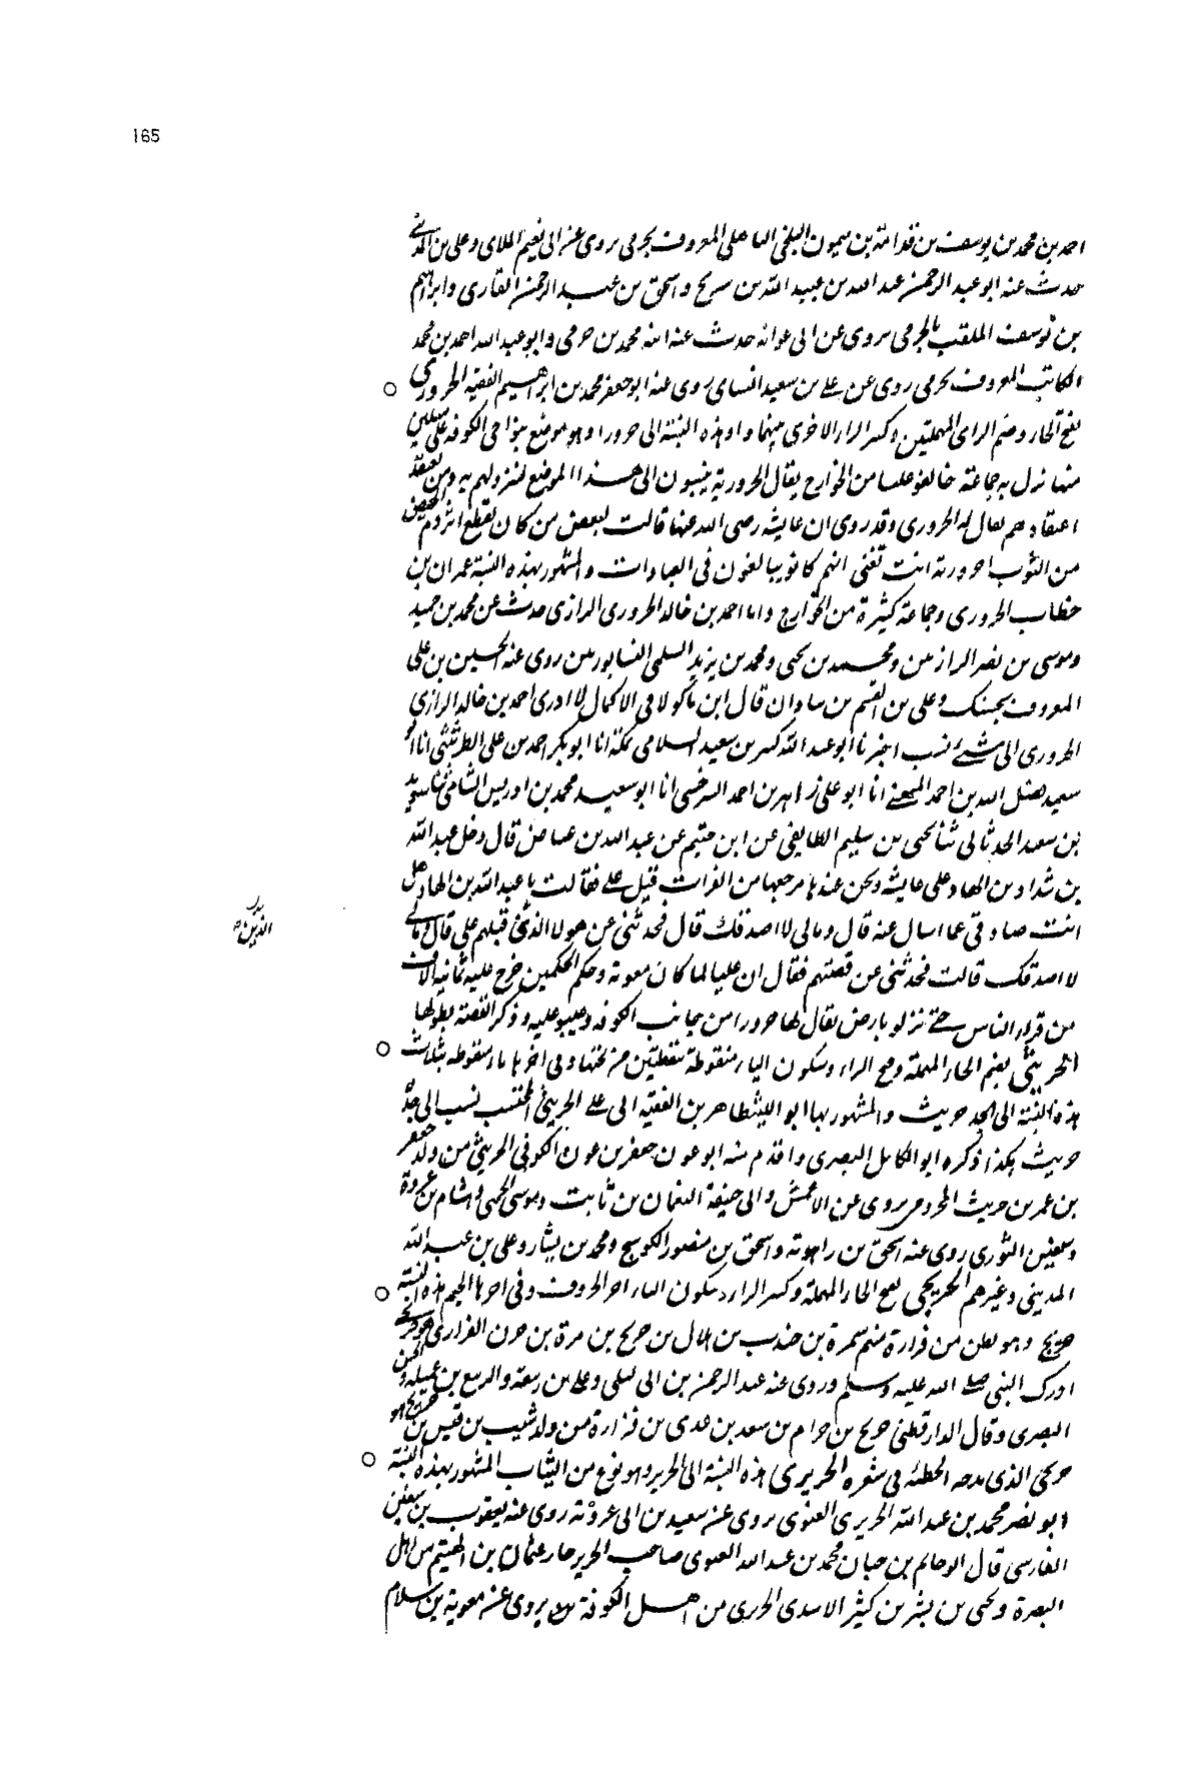 165
احمد بن محمد بن يوسف بن قدامة بن ميمون البلخي الباهلي المعروف بحرمي يروى عن ابي نعيم الملاى وعلي بن المديني
حدث عنه ابو عبد الرحمن عبد الله بن عبيد الله بن سريج واسحق بن عبد الرحمن القارى وابراهيم
بن يوسف الملقب بالحرمي يروى عن ابى عوانه حدث عنه ابنه محمد بن حرمي وابو عبد الله احمد بن محمد
الكاتب المعروف بحرمي روى عن على بن سعيد النساى روى عنه ابو جعفر محمد بن ابراهيم الفقيه الحرورى
بفتح الحاء وضم الراى المهملتين وكسر الراء الاخرى بينهما واو هذه النسبة الى حرورا وهو موضع بنواحى الكوفه على ميلين
منها نزل به جماعة خالفوا عليا من الخوارج يقال الحرورية ينسبون الى هذا الموضع لنزولهم به ومن يعتقد
اعتقادهم يقال له الحرورى وقد روى ان عايشة رضى الله عنها قالت لبعض من كان يقطع اثر دم الحيض
من الثوب احرورية انت تعنى انهم كانوا يبالغون فى العبادات والمشهور بهذه النسبة عمران بن
حطاب الحرورى وجماعة كثيرة من الخوارج واما احمد بن خالد الحرورى الرازى حدث عن محمد بن حميد
وموسى بن نصر الرازيين ومحمد بن يحيى ومحمد بن يزيد السلمى النسابوريين روى عنه الحسين بن على
المعروف بحينك وعلى بن القسم بن شاذان قال ابن ماكولا فى الاكمال لا ادرى احمد بن خالد الرازى
الحرورى الى شئ نسب اخبرنا ابو عبد الله كثير بن سعيد السلامى بمكة انا ابو بكر احمد بن على الطريثيثى انا ابو
سعيد فضل الله بن احمد الميهنى انا ابو على زاهر بن احمد السرخسى انا ابو سعيد محمد بن ادريس الشامى ثنا سويد
بن سعيد الحدثانى ثنا يحيى بن سليم الطايفى عن ابن خثيم عن عبد الله بن عياض قال دخل عبد الله
بن شداد بن الهاد على عايشة ونحن عندها مرجعها من الفرات قتيل على فقالت يا عبد الله بن الهاد هل
انت صادقى عما اسال عنه قال ومالى لا اصدقك قال فحدثنى عن هولا الذين قتلهم على قال ومالى
لا اصدقك قالت فحدثنى عن قصتهم فقال ان عليا لما كان معوية وحكم الحكمين خرج عليه ثمانية الاف
من قراء الناس حتى نزلوا بارض يقال لها حرورا من جانب الكوفه وعيبوا عليه وذكر القصة بطولها
الحريثى بضم الحاء المهملة وفتح الراء وسكون الياء منقوطة بنقطتين من تحتها وفى اخرها ثاء منقوطه بثلاث
هذه النسبة الى الجد حريث والمشهور بها ابو الليث طاهر بن الفقيه ابى على الحريثى المحتسب نسب الى جده
حريث هكذا ذكره ابو الكامل البصرى واقدم منه ابو عون جعفر بن عون الكوفى الحريثى من ولد جعفر
بن عمر بن حريث المخزومى يروى عن الاعمش وابى حنيفة النعمان بن ثابت وموسى الجهنى وهشام بن عروة
وسفين الثورى روى عنه اسحق بن راهويه واسحق بن منصور الكوسج ومحمد بن بشار وعلى بن عبد الله
المدينى وغيرهم الحريجى بفتح الحاء المهملة وكسر الراء وسكون الياء اخر الحروف وفى اخرها الجيم هذه النسبة الى
حريج وهو بطن من فزارة منهم سمرة بن جندب بن هلال بن حريج بن مرة بن حزن الفزارى
ادرك النبى صلى الله عليه وسلم وروى عنه عبد الرحمن بن ابى ليلى وعلى بن ربيعة والربيع بن عميلة والحسن
البصرى وقال الدارقطنى حريج بن حرام بن سعد بن عدى بن فزارة من ولد شبيب بن قيس بن حريج هو
حريجى الذى مدحه الحطئه فى شعره الحريرى هذه النسبة الى الحرير وهو نوع من الثياب المشهور بهذه النسبة
ابو نصر محمد بن عبد الله الحريرى الغنوى يروى عن سعيد بن ابى عروبة روى عنه يعقوب بن سفين
الفارسى قال ابو حاتم بن حبان محمد بن عبد الله الغنوى صاحب الحرير جار عثمان بن الهيثم من اهل
البصرة ويحيى بن بشر بن كثير الاسدى الحريرى من اهل الكوفة يروى عن معوية بن سلام
بدر
الدين